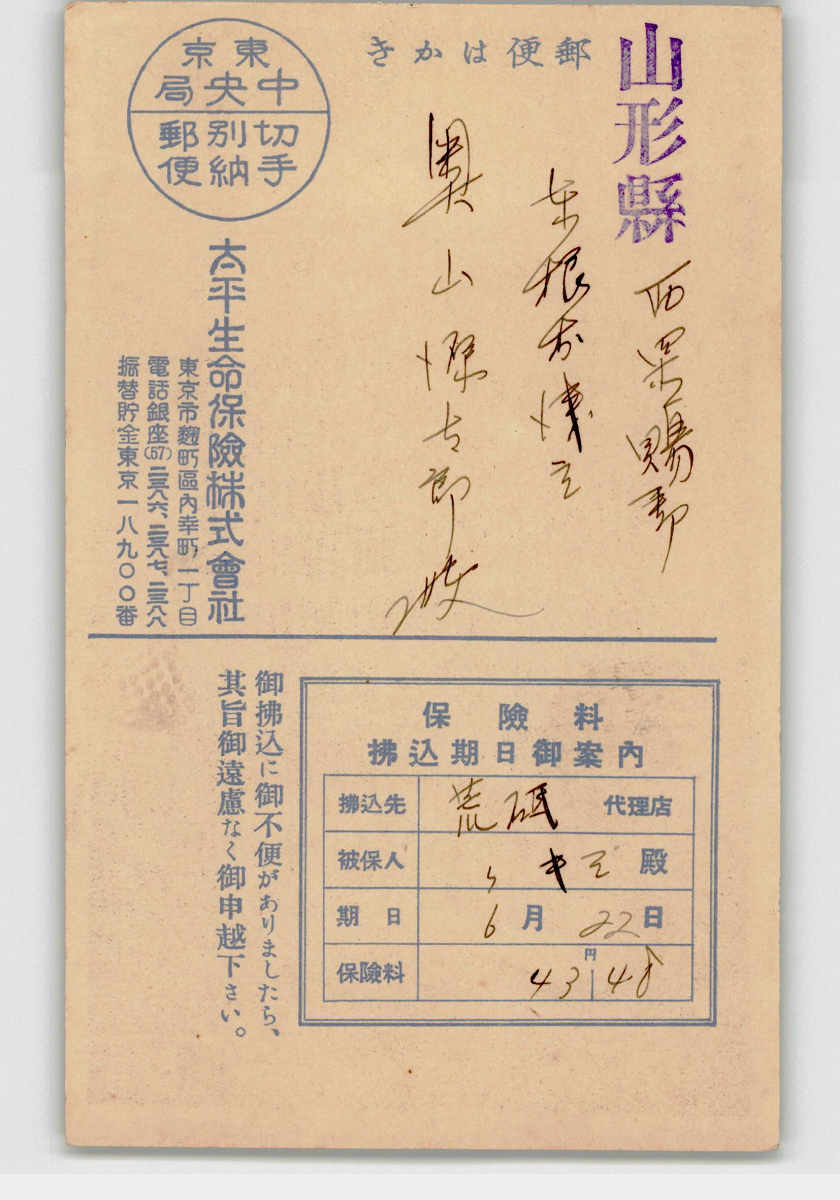 郵便はかき
山形縣
西置賜郡
東根村浅立
奥山 太郎 様
東京
中央局
切手
別納
郵便
太平生命保險株式會社
東京市麹町區內幸町一丁目
電話銀座(57)二三八六、二三八七、二三八八
振替貯金東京一八九〇〇番
保險料
拂込期日御案內
拂込先 荒砥 代理店
被保人 〃 キミ 殿
期日 6月22日
保險料 43円48
御拂込に御不便がありましたら、
其旨御遠慮なく御申越下さい。